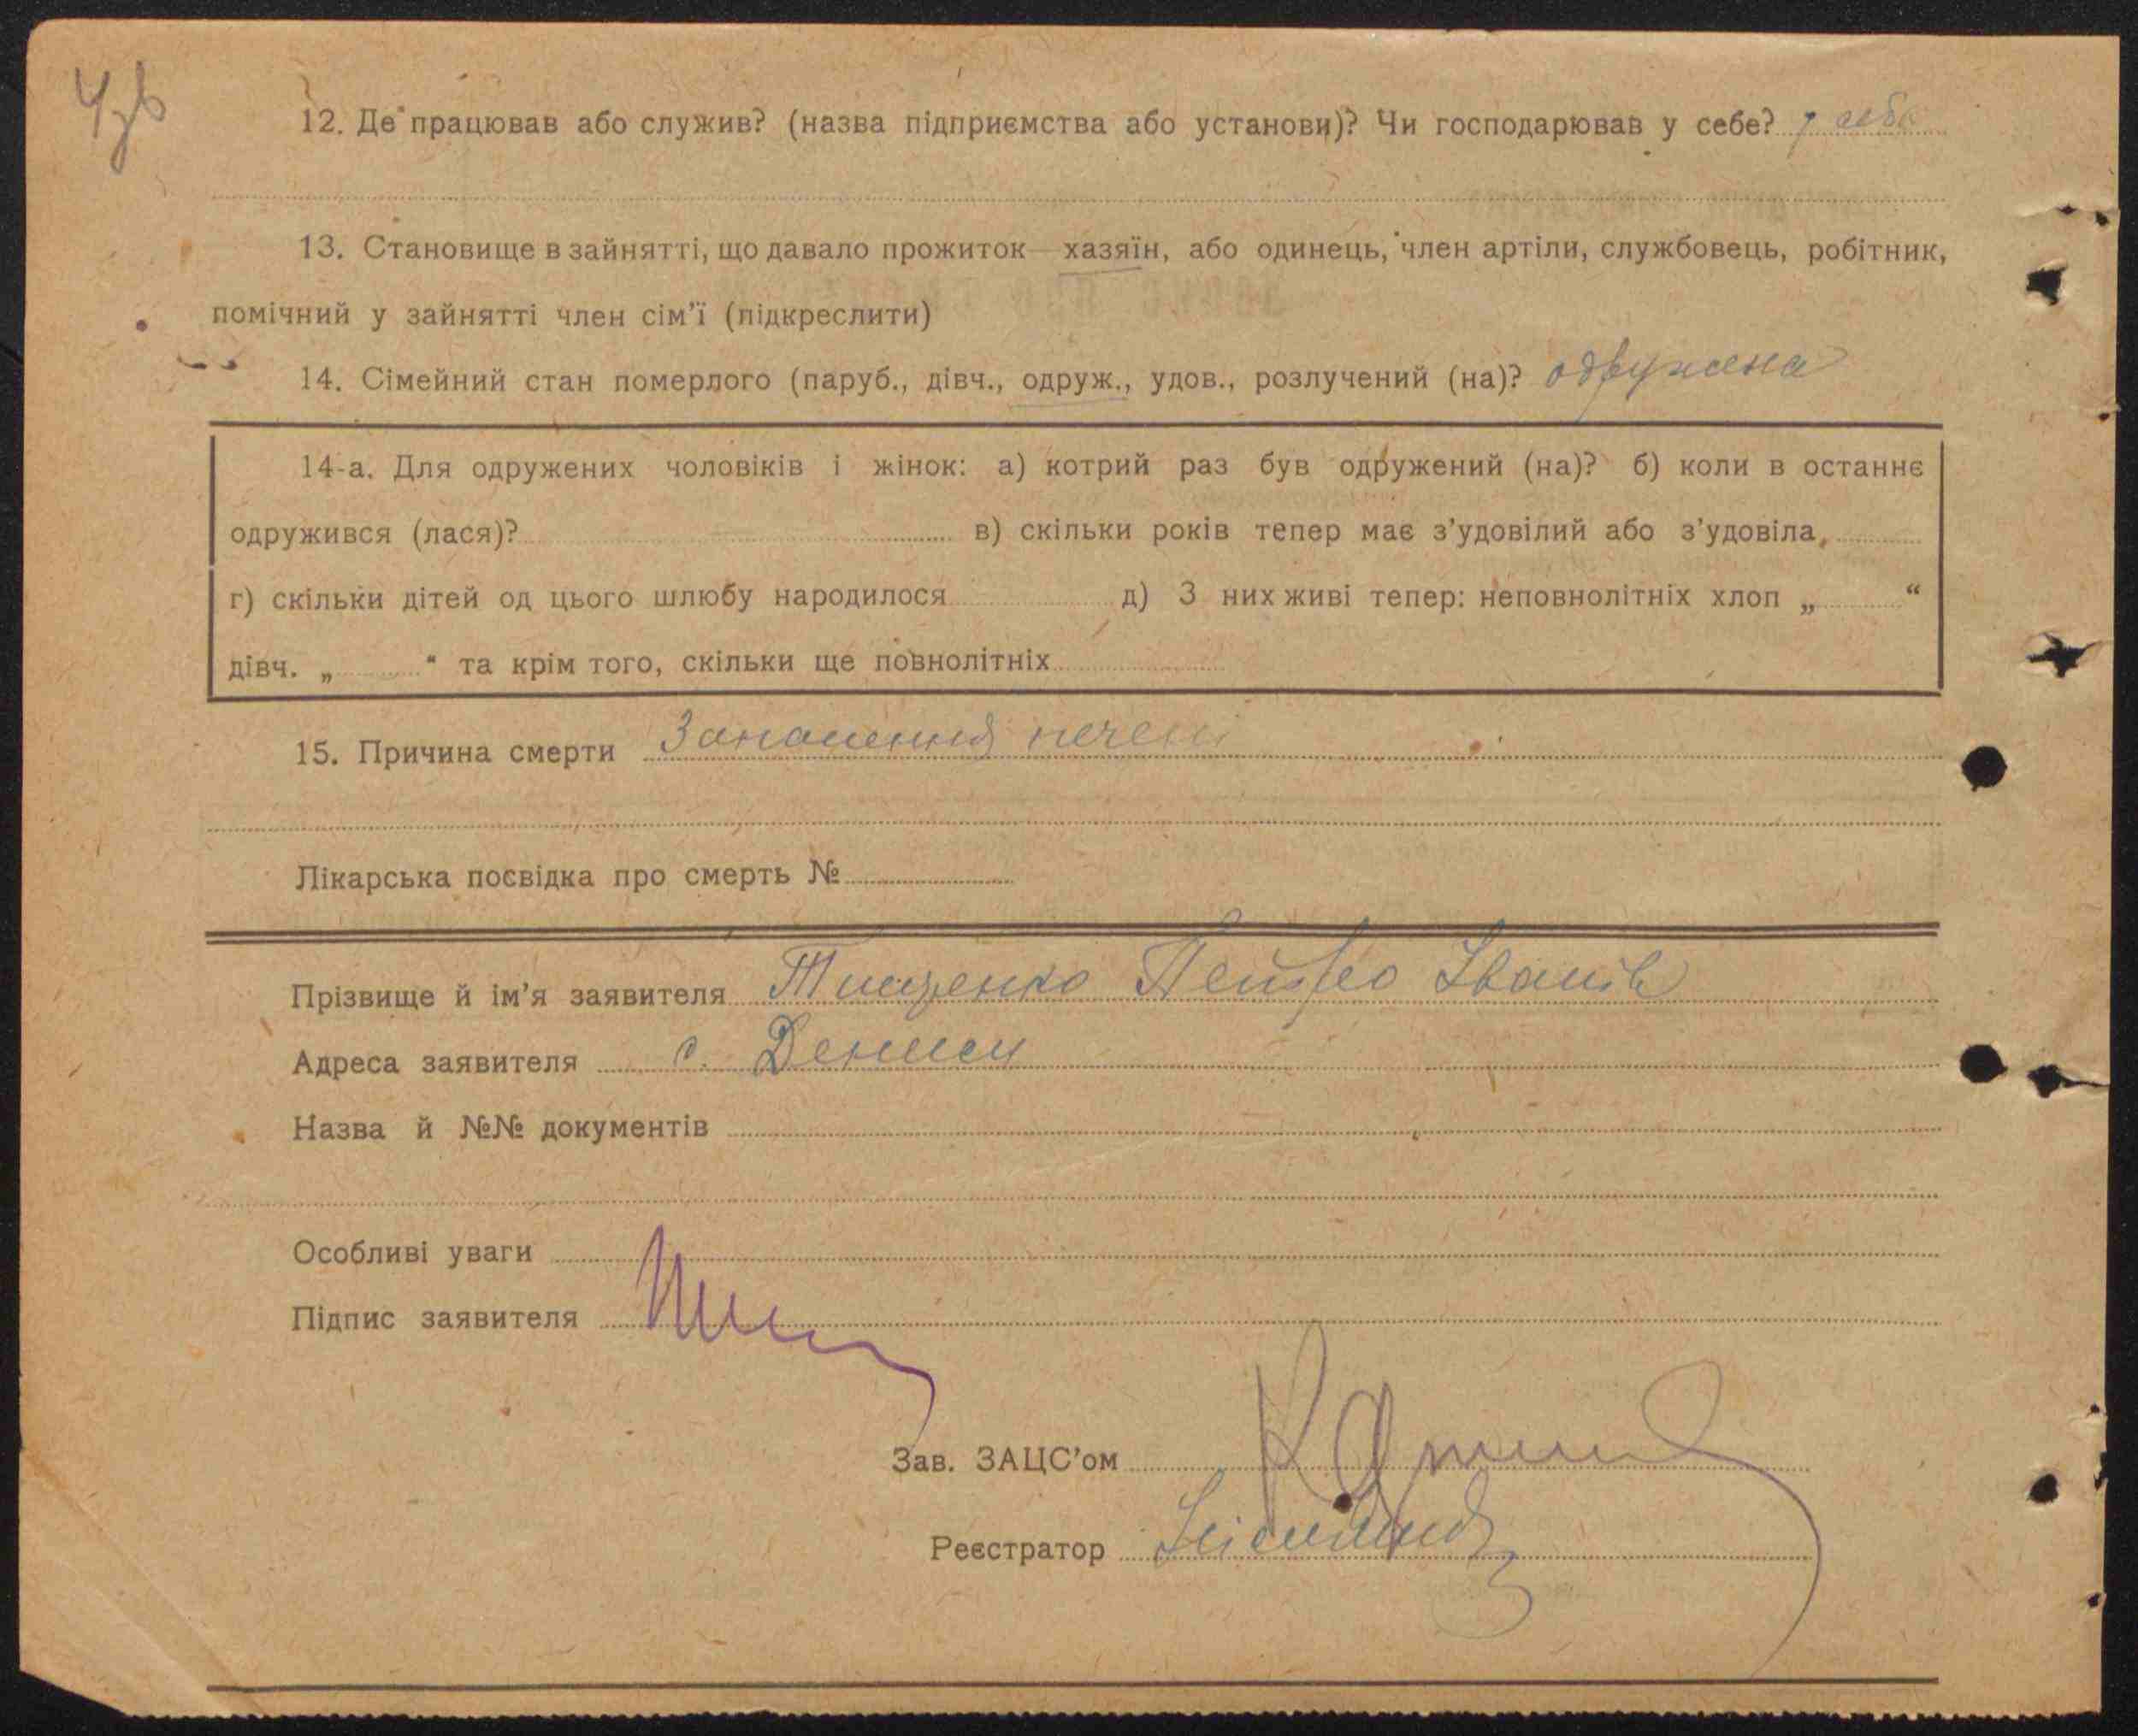 4зв
12. Де працював або служив? (назва підприємства або установи)? Чи господарював у себе? у себе
13. Становище в зайнятті, що давало прожиток—хазяїн, або одинець, член артіли, службовець, робітник,
помічний у зайнятті член сім'ї (підкреслити)
14. Сімейний стан померлого (паруб., дівч., одруж., удов., розлучений (на)? одружена
14-а. Для одружених чоловіків і жінок: а) котрий раз був одружений (на)? б) коли в останнє
одружився (лася)? в) скільки років тепер має з'удовілий або з'удовіла,
г) скільки дітей од цього шлюбу народилося д) З них живі тепер: неповнолітніх хлоп „ “
дівч. „ “ та крім того, скільки ще повнолітніх
15. Причина смерти Запалення печені
Лікарська посвідка про смерть №
Прізвище й ім'я заявителя Тищенко Петро Іванів
Адреса заявителя с. Дениси
Назва й №№ документів
Особливі уваги
Підпис заявителя
Зав. ЗАЦС'ом
Реєстратор